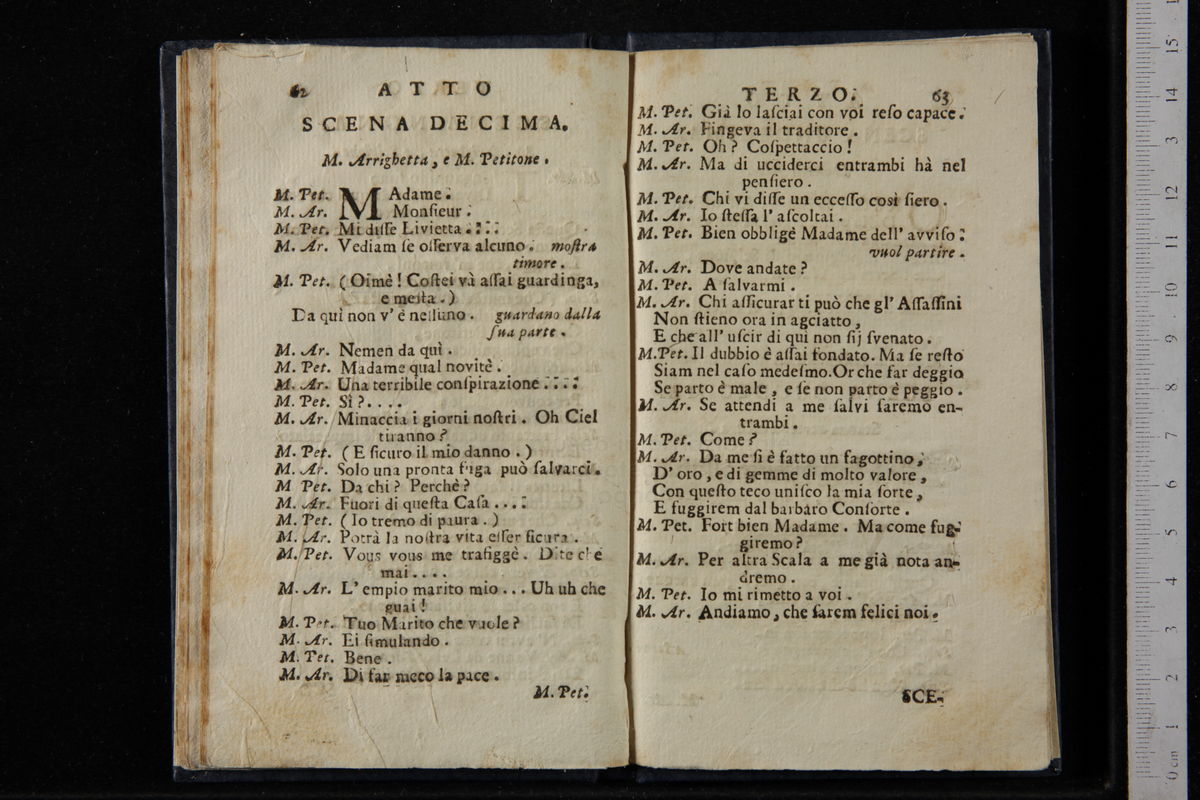 62 ATTO
SCENA DECIMA.
M. Arrighetta, e M. Petitone.
M. Pet. MAdame.
M. Ar. Monſieur.
M. Pet. Mi diſſe Livietta....
M. Ar. Vediam ſe oſſerva alcuno. moſtra
timore.
M. Pet. (Oimè! Coſtei và aſſai guardinga,
e meſta.)
Da quì non v'è neſſuno. guardano dalla
ſua parte.
M. Ar. Nemen da quì.
M. Pet. Madame qual novitè.
M. Ar. Una terribile conſpirazione....
M. Pet. Sì?....
M. Ar. Minaccia i giorni noſtri. Oh Ciel
tiranno?
M. Pet. (E ſicuro il mio danno.)
M. Ar. Solo una pronta fuga può ſalvarci.
M Pet. Da chi? Perchè?
M. Ar. Fuori di queſta Caſa....
M. Pet. (Io tremo di paura.)
M. Ar. Potrà la noſtra vita eſſer ſicura.
M. Pet. Vous vous me trafiggè. Dite che
mai....
M. Ar. L'empio marito mio... Uh uh che
guai!
M. Pet. Tuo Marito che vuole?
M. Ar. Ei ſimulando.
M. Pet. Bene.
M. Ar. Di far meco la pace.
M. Pet.
TERZO. 63
M. Pet. Già lo laſciai con voi reſo capace.
M. Ar. Fingeva il traditore.
M. Pet. Oh? Coſpettaccio!
M. Ar. Ma di ucciderci entrambi hà nel
penſiero.
M. Pet. Chi vi diſſe un ecceſſo così fiero.
M. Ar. Io ſteſſa l'aſcoltai.
M. Pet. Bien obbligè Madame dell'avviſo:
vuol partire.
M. Ar. Dove andate?
M. Pet. A ſalvarmi.
M. Ar. Chi aſſicurar ti può che gl'Aſſaſſini
Non ſtieno ora in agciatto,
E che all'uſcir di qui non ſij ſvenato.
M. Pet. Il dubbio è aſſai fondato. Ma ſe reſto
Siam nel caſo medeſmo. Or che far deggio
Se parto è male, e ſe non parto è peggio.
M. Ar. Se attendi a me ſalvi ſaremo en-
trambi.
M. Pet. Come?
M. Ar. Da me ſi è fatto un fagottino,
D'oro, e di gemme di molto valore,
Con queſto teco uniſco la mia ſorte,
E fuggirem dal barbaro Conſorte.
M. Pet. Fort bien Madame. Ma come fug-
giremo?
M. Ar. Per altra Scala a me già nota an-
dremo.
M. Pet. Io mi rimetto a voi.
M. Ar. Andiamo, che ſarem felici noi.
SCE-
0 cm 1 2 3 4 5 6 7 8 9 10 11 12 13 14 15